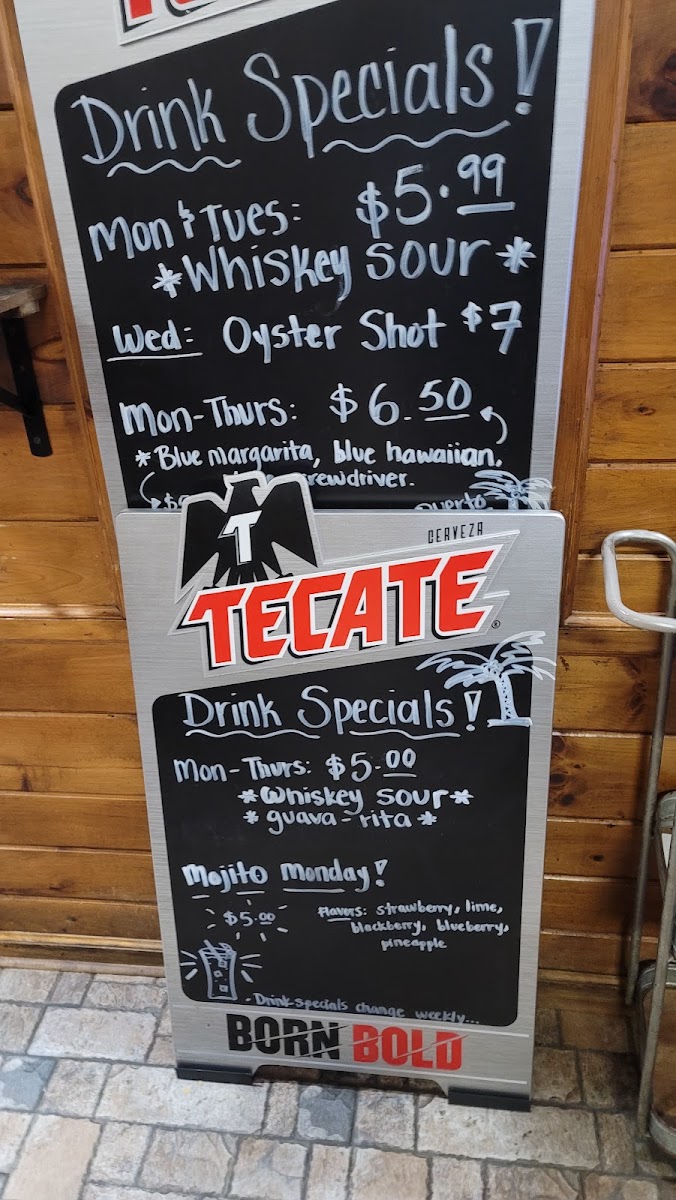 Drink Specials!
Mon & Tues: $5.99
*Whiskey Sour*
Wed: Oyster Shot $7
Mon-Thurs: $6.50
*Blue margarita, blue hawaiian,
CERVEZA
T
TECATE®
Drink Specials!
Mon-Thurs: $5.00
*Whiskey sour*
*guava-rita*
Mojito Monday!
$5.00
Flavors: strawberry, lime,
blackberry, blueberry,
pineapple
Drink specials change weekly...
BORN BOLD